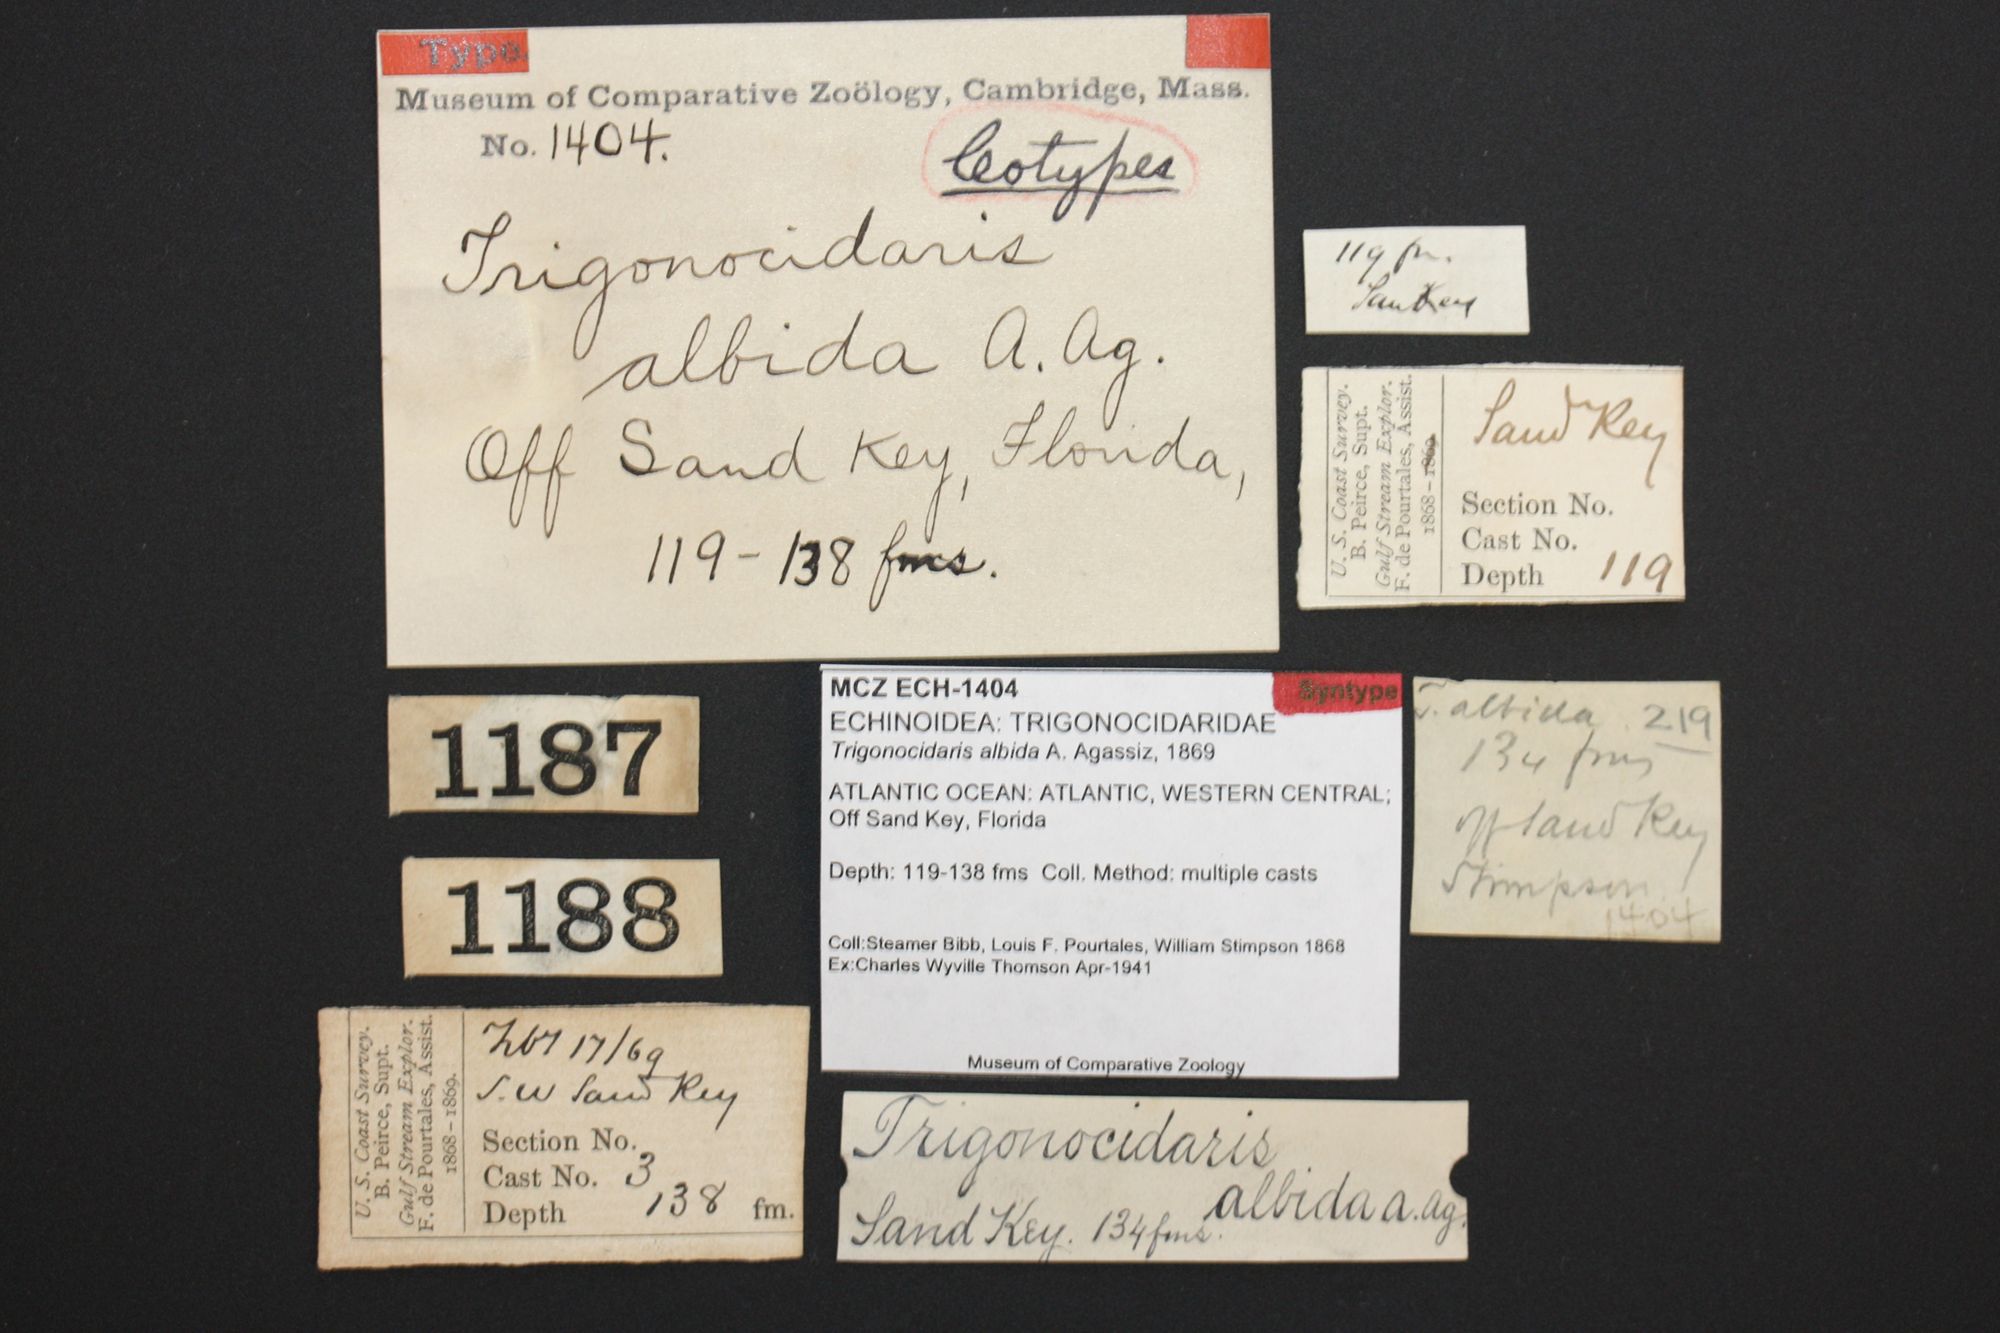 Type.
Museum of Comparative Zoölogy, Cambridge, Mass.
No. 1404.
Cotypes
Trigonocidaris
albida A. Ag.
Off Sand Key, Florida,
119-138 fms.
119 fm.
Sand Key
U. S. Coast Survey.
B. Peirce, Supt.
Gulf Stream Explor.
F. de Pourtales, Assist.
1868-1869.
Sand Key
Section No.
Cast No.
Depth 119
1187
1188
MCZ ECH-1404
Syntype
ECHINOIDEA: TRIGONOCIDARIDAE
Trigonocidaris albida A. Agassiz, 1869
ATLANTIC OCEAN: ATLANTIC, WESTERN CENTRAL;
Off Sand Key, Florida
Depth: 119-138 fms Coll. Method: multiple casts
Coll:Steamer Bibb, Louis F. Pourtales, William Stimpson 1868
Ex:Charles Wyville Thomson Apr-1941
Museum of Comparative Zoology
T. albida 219
134 fms
off Sand Key
Stimpson
1404
U. S. Coast Survey.
B. Peirce, Supt.
Gulf Stream Explor.
F. de Pourtales, Assist.
1868-1869.
17/69
S.W Sand Key
Section No.
Cast No. 3
Depth 138 fm.
Trigonocidaris
albida A. Ag.
Sand Key. 134 fms.